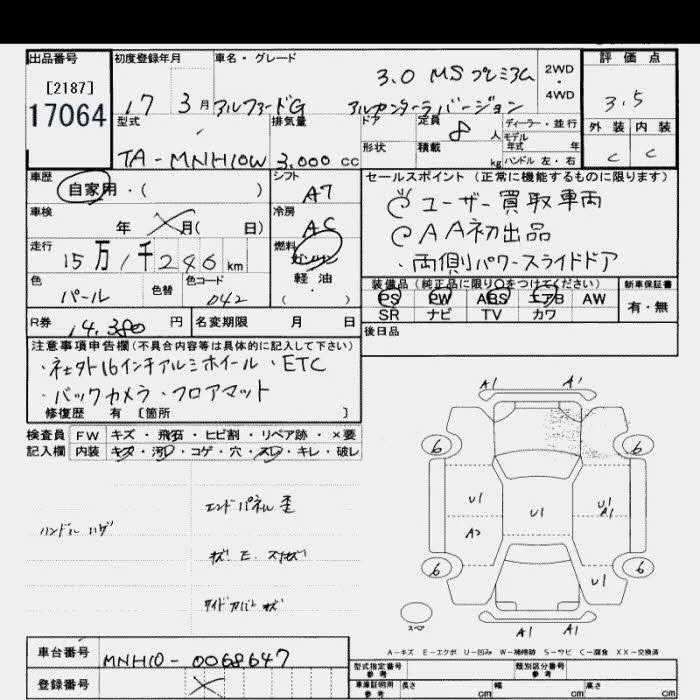 出品番号
[2187]
17064
初度登録年月
17 3月
車名・グレード
3.0 MSプレミアム
アルファードG アルカンターラバージョン
2WD・4WD
評価点
3.5
外装 内装
C C
型式
TA-MNH10W
排気量
3.000cc
ドア
形状
定員
8人
積載
kg
ディーラー・並行
モデル年式 年
ハンドル 左・右
車歴
自家用・( )
シフト
A7
車検
年 月( 日)
冷房
AC
走行
15万1千246km
燃料
ガソリン
軽油
・( )
色
パール
色替
色コード
042
R券
14,380円
名変期限 月 日
セールスポイント(正常に機能するものに限ります)
ユーザー買取車両
AA初出品
・両側パワースライドドア
装備品(純正品に限り○をつけてください)
PS PW ABS エアB AW
SR ナビ TV カワ
新車保証書
有・無
後日品
注意事項申告欄(不具合内容等は具体的に記入して下さい)
・社外16インチアルミホイール・ETC
・バックカメラ・フロアマット
修復歴 有 [箇所 ]
検査員記入欄
FW キズ・飛石・ヒビ割・リペア跡・×要
内装 キズ・汚レ・コゲ・穴・スレ・キレ・破レ
エンドパネル歪
ハンドル ハゲ
A1 A1
6 6
U1 U1 U1
A1
A2
6 6
U1
スペア
A1 A1
A-キズ E-エクボ U-凹み W-補修跡 S-サビ C-腐食 XX-交換済
車台番号
MNH10-0068647
登録番号
型式指定番号
参考
類別区分番号
参考
車庫証明用
参考
長さ cm 幅 cm 高さ cm